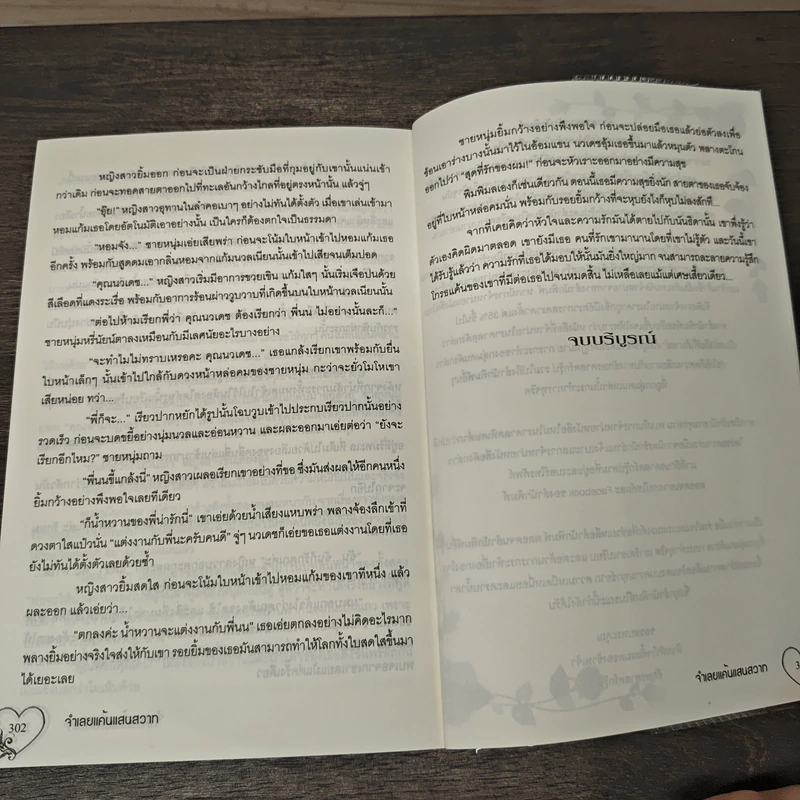 หญิงสาวยิ้มออก ก่อนจะเป็นฝ่ายกระชับมือที่กุมอยู่กับเขานั้นแน่นเข้า
กว่าเดิม ก่อนจะทอดสายตาออกไปที่ทะเลอันกว้างไกลที่อยู่ตรงหน้านั้น แล้วจู่ๆ
“อุ๊ย!” หญิงสาวอุทานในลำคอเบาๆ อย่างไม่ทันได้ตั้งตัว เมื่อเขาเล่นเข้ามา
หอมแก้มเธอโดยอัตโนมัติเอาอย่างนั้น เป็นใครก็ต้องตกใจเป็นธรรมดา
“หอมจัง...” ชายหนุ่มเอ่ยเสียงพร่า ก่อนจะโน้มใบหน้าเข้าไปหอมแก้มเธอ
อีกครั้ง พร้อมกับสูดดมเอากลิ่นหอมจากแก้มนวลเนียนนั้นเข้าไปเสียจนเต็มปอด
“คุณนวเดช...” หญิงสาวเริ่มมีอาการขวยเขิน แก้มใสๆ นั้นเริ่มเจือปนด้วย
สีเลือดที่แดงระเรื่อ พร้อมกับอาการร้อนผ่าววูบวาบที่เกิดขึ้นบนใบหน้านวลเนียนนั้น
“ต่อไปห้ามเรียกพี่ว่า คุณนวเดช ต้องเรียกว่า พี่นน ไม่อย่างนั้นละก็...”
ชายหนุ่มหรี่นัยน์ตาลงเหมือนกับมีเลศนัยอะไรบางอย่าง
“จะทำไมไม่ทราบเหรอคะ คุณนวเดช...” เธอแกล้งเรียกเขาพร้อมกับยื่น
ใบหน้าเล็กๆ นั้นเข้าไปใกล้กับดวงหน้าหล่อคมของชายหนุ่ม กะว่าจะยั่วโมโหเขา
เสียหน่อย ทว่า...
“พี่ก็จะ...” เรียวปากหยักได้รูปนั้นโฉบวูบเข้าไปประกบเรียวปากนั้นอย่าง
รวดเร็ว ก่อนจะบดขยี้อย่างนุ่มนวลและอ่อนหวาน และผละออกมาเอ่ยต่อว่า “ยังจะ
เรียกอีกไหม?” ชายหนุ่มถาม
“พี่นนขี้แกล้งนี่” หญิงสาวเผลอเรียกเขาอย่างที่ขอ ซึ่งมันส่งผลให้อีกคนหนึ่ง
ยิ้มกว้างอย่างพึงพอใจเลยทีเดียว
“ก็น้ำหวานของพี่น่ารักนี่” เขาเอ่ยด้วยน้ำเสียงแหบพร่า พลางจ้องลึกเข้าที่
ดวงตาใสแป๋วนั่น “แต่งงานกับพี่นะครับคนดี” จู่ๆ นวเดชก็เอ่ยขอเธอแต่งงานโดยที่เธอ
ยังไม่ทันได้ตั้งตัวเลยด้วยซ้ำ
หญิงสาวยิ้มสดใส ก่อนจะโน้มใบหน้าเข้าไปหอมแก้มของเขาทีหนึ่ง แล้ว
ผละออก แล้วเอ่ยว่า...
“ตกลงค่ะ น้ำหวานจะแต่งงานกับพี่นน” เธอเอ่ยตกลงอย่างไม่คิดอะไรมาก
พลางยิ้มอย่างจริงใจส่งให้กับเขา รอยยิ้มของเธอมันสามารถทำให้โลกทั้งใบสดใสขึ้นมา
ได้เยอะเลย
302
จำเลยแค้นแสนสวาท
ชายหนุ่มยิ้มกว้างอย่างพึงพอใจ ก่อนจะปล่อยมือเธอแล้วย่อตัวลงเพื่อ
ช้อนเอาร่างบางนั้นมาไว้ในอ้อมแขน นวเดชอุ้มเธอขึ้นมาแล้วหมุนตัว พลางตะโกน
ออกไปว่า “สุดที่รักของผม!” ก่อนจะหัวเราะออกมาอย่างมีความสุข
พิมพิมลเองก็เช่นเดียวกัน ตอนนี้เธอมีความสุขยิ่งนัก สายตาของเธอจับจ้อง
อยู่ที่ใบหน้าหล่อคมนั้น พร้อมกับรอยยิ้มกว้างที่จะหุบยังไงก็หุบไม่ลงสักที...
จากที่เคยคิดว่าหัวใจและความรักมันได้ตายไปกับนันธิดานั้น เขาพึ่งรู้ว่า
ตัวเองคิดผิดมาตลอด เขายังมีเธอ คนที่รักเขามานานโดยที่เขาไม่รู้ตัว และวันนี้เขา
ได้รับรู้แล้วว่า ความรักที่เธอได้มอบให้นั้นมันยิ่งใหญ่มาก จนสามารถละลายความรู้สึก
โกรธแค้นของเขาที่มีต่อเธอไปจนหมดสิ้น ไม่เหลือเลยแม้แต่เศษเสี้ยวเดียว...
จบบริบูรณ์
จำเลยแค้นแสนสวาท